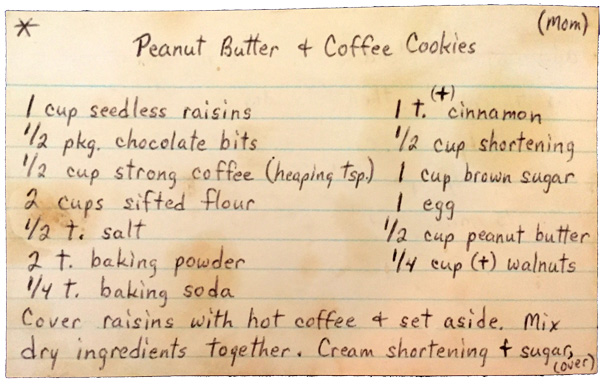 * (Mom)
Peanut Butter & Coffee Cookies
1 cup seedless raisins
1/2 pkg. chocolate bits
1/2 cup strong coffee (heaping tsp.)
2 cups sifted flour
1/2 t. salt
2 t. baking powder
1/4 t. baking soda
1 t. (+) cinnamon
1/2 cup shortening
1 cup brown sugar
1 egg
1/2 cup peanut butter
1/4 cup (+) walnuts
Cover raisins with hot coffee & set aside. Mix
dry ingredients together. Cream shortening + sugar,
(over)